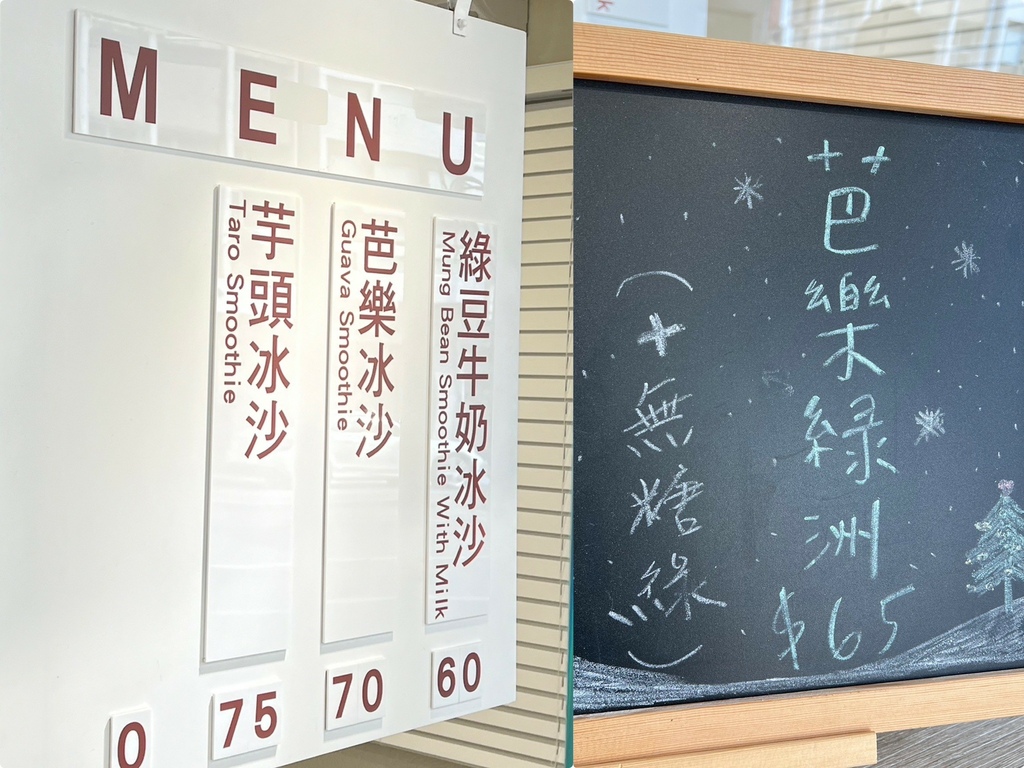 MENU
綠豆牛奶冰沙
Mung Bean Smoothie With Milk
60
芭樂冰沙
Guava Smoothie
70
芋頭冰沙
Taro Smoothie
75
0
芭樂綠洲
$65
(+無糖綠)